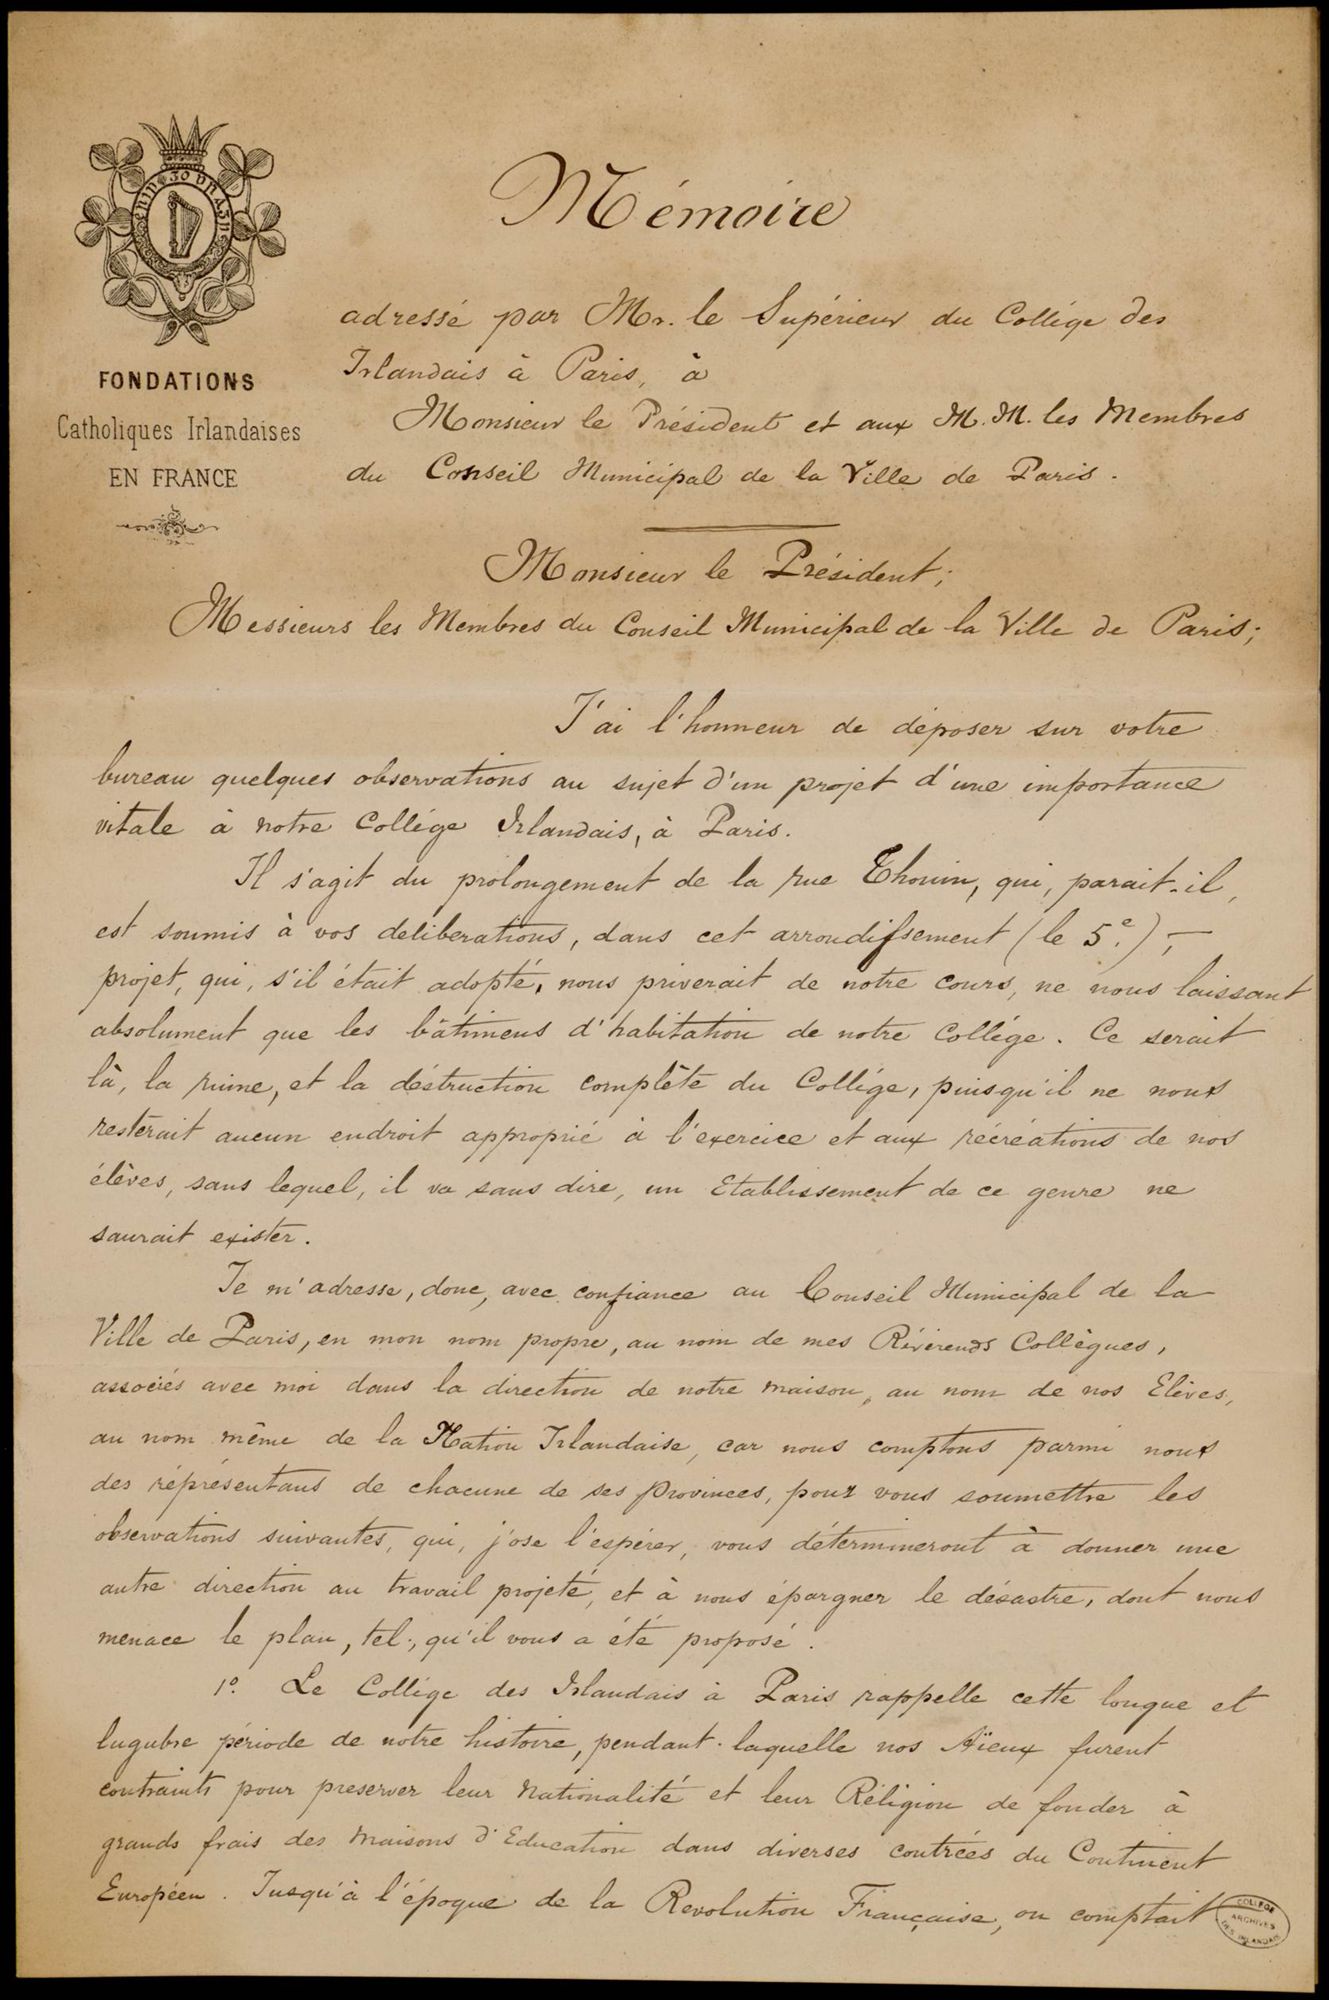 Mémoire
adressé par Mr. le Supérieur du Collége des
Irlandais à Paris, à
Monsieur le Président et aux M.M. les Membres
du Conseil Municipal de la Ville de Paris.
FONDATIONS
Catholiques Irlandaises
EN FRANCE
Monsieur le Président;
Messieurs les Membres du Conseil Municipal de la Ville de Paris;
J'ai l'honneur de déposer sur votre
bureau quelques observations au sujet d'un projet d'une importance
vitale à notre Collége Irlandais, à Paris.
Il s'agit du prolongement de la rue Thouin, qui, parait-il,
est soumis à vos deliberations, dans cet arrondissement (le 5e.); —
projet, qui, s'il était adopté, nous priverait de notre cours, ne nous laissant
absolument que les bâtimens d'habitation de notre Collége. Ce serait
là, la ruine, et la déstruction complète du Collége, puisqu'il ne nous
resterait aucun endroit approprié à l'exercice et aux récréations de nos
élèves, sans lequel, il va sans dire, un Etablissement de ce genre ne
saurait exister.
Je m'adresse, donc, avec confiance au Conseil Municipal de la
Ville de Paris, en mon nom propre, au nom de mes Révérends Collègues,
associés avec moi dans la direction de notre maison, au nom de nos Elèves,
au nom même de la Nation Irlandaise, car nous comptons parmi nous
des réprésentans de chacune de ses Provinces, pour vous soumettre les
observations suivantes, qui, j'ose l'espérer, vous détermineront à donner une
autre direction au travail projeté, et à nous épargner le désastre, dont nous
menace le plan, tel, qu'il vous a été proposé.
1o. Le Collége des Irlandais à Paris rappelle cette longue et
lugubre période de notre histoire, pendant laquelle nos Aïeux furent
contraints pour preserver leur Nationalité et leur Réligion de fonder à
grands frais des Maisons d'Education dans diverses contrées du Continent
Européen. Jusqu'à l'époque de la Revolution Française, on comptait
COLLEGE
ARCHIVES
DES IRLANDAIS